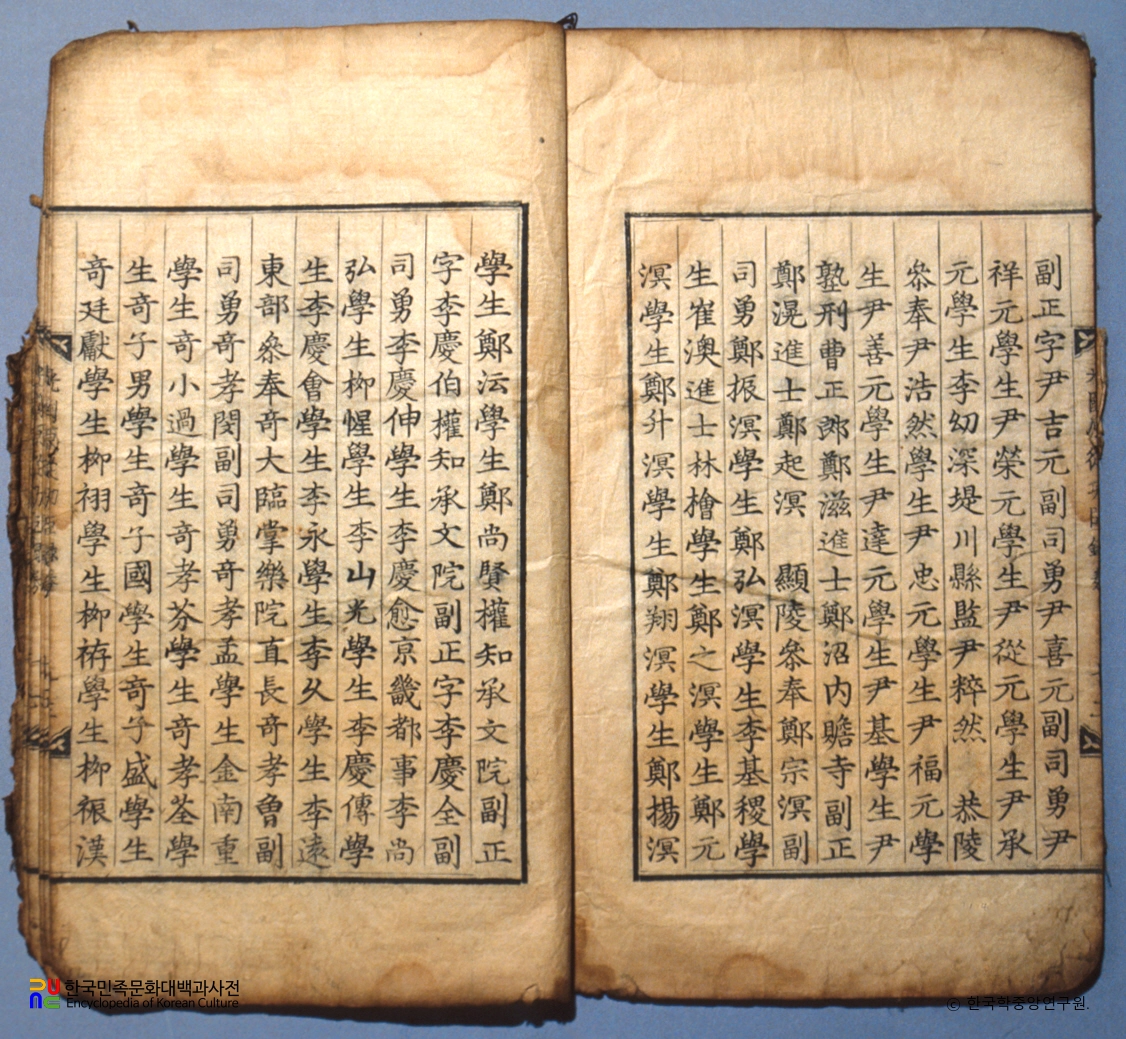 副正字尹吉元副司勇尹喜元副司勇尹
祥元學生尹榮元學生尹從元學生尹承
元學生李幼深堤川縣監尹粹然 恭陵
叅奉尹浩然學生尹忠元學生尹福元學
生尹善元學生尹達元學生尹基學生尹
塾刑曹正郎鄭滋進士鄭沼内贍寺副正
鄭滉進士鄭起溟 顯陵叅奉鄭宗溟副
司勇鄭振溟學生鄭弘溟學生李基稷學
生崔澳進士林檜學生鄭之溟學生鄭元
溟學生鄭升溟學生鄭翔溟學生鄭揚溟
學生鄭沄學生鄭尚賢權知承文院副正
字李慶伯權知承文院副正字李慶全副
司勇李慶伸學生李慶愈京畿都事李尚
弘學生柳惺學生李山光學生李慶傳學
生李慶會學生李永學生李久學生李遠
東部叅奉奇大臨掌樂院直長奇孝曾副
司勇奇孝閔副司勇奇孝孟學生金南重
學生奇小過學生奇孝芬學生奇孝荃學
生奇子男學生奇子國學生奇子盛學生
奇廷獻學生柳 學生柳 學生柳 漢
한국민족문화대백과사전
Encyclopedia of Korean Culture
© 한국학중앙연구원.